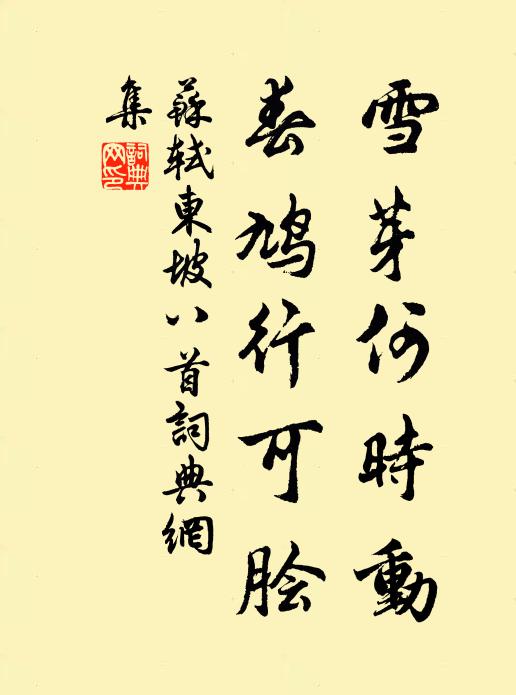 雪芽何時動
春鳩行可脍
蘇軾東坡八首詞典網
集
詞典網印